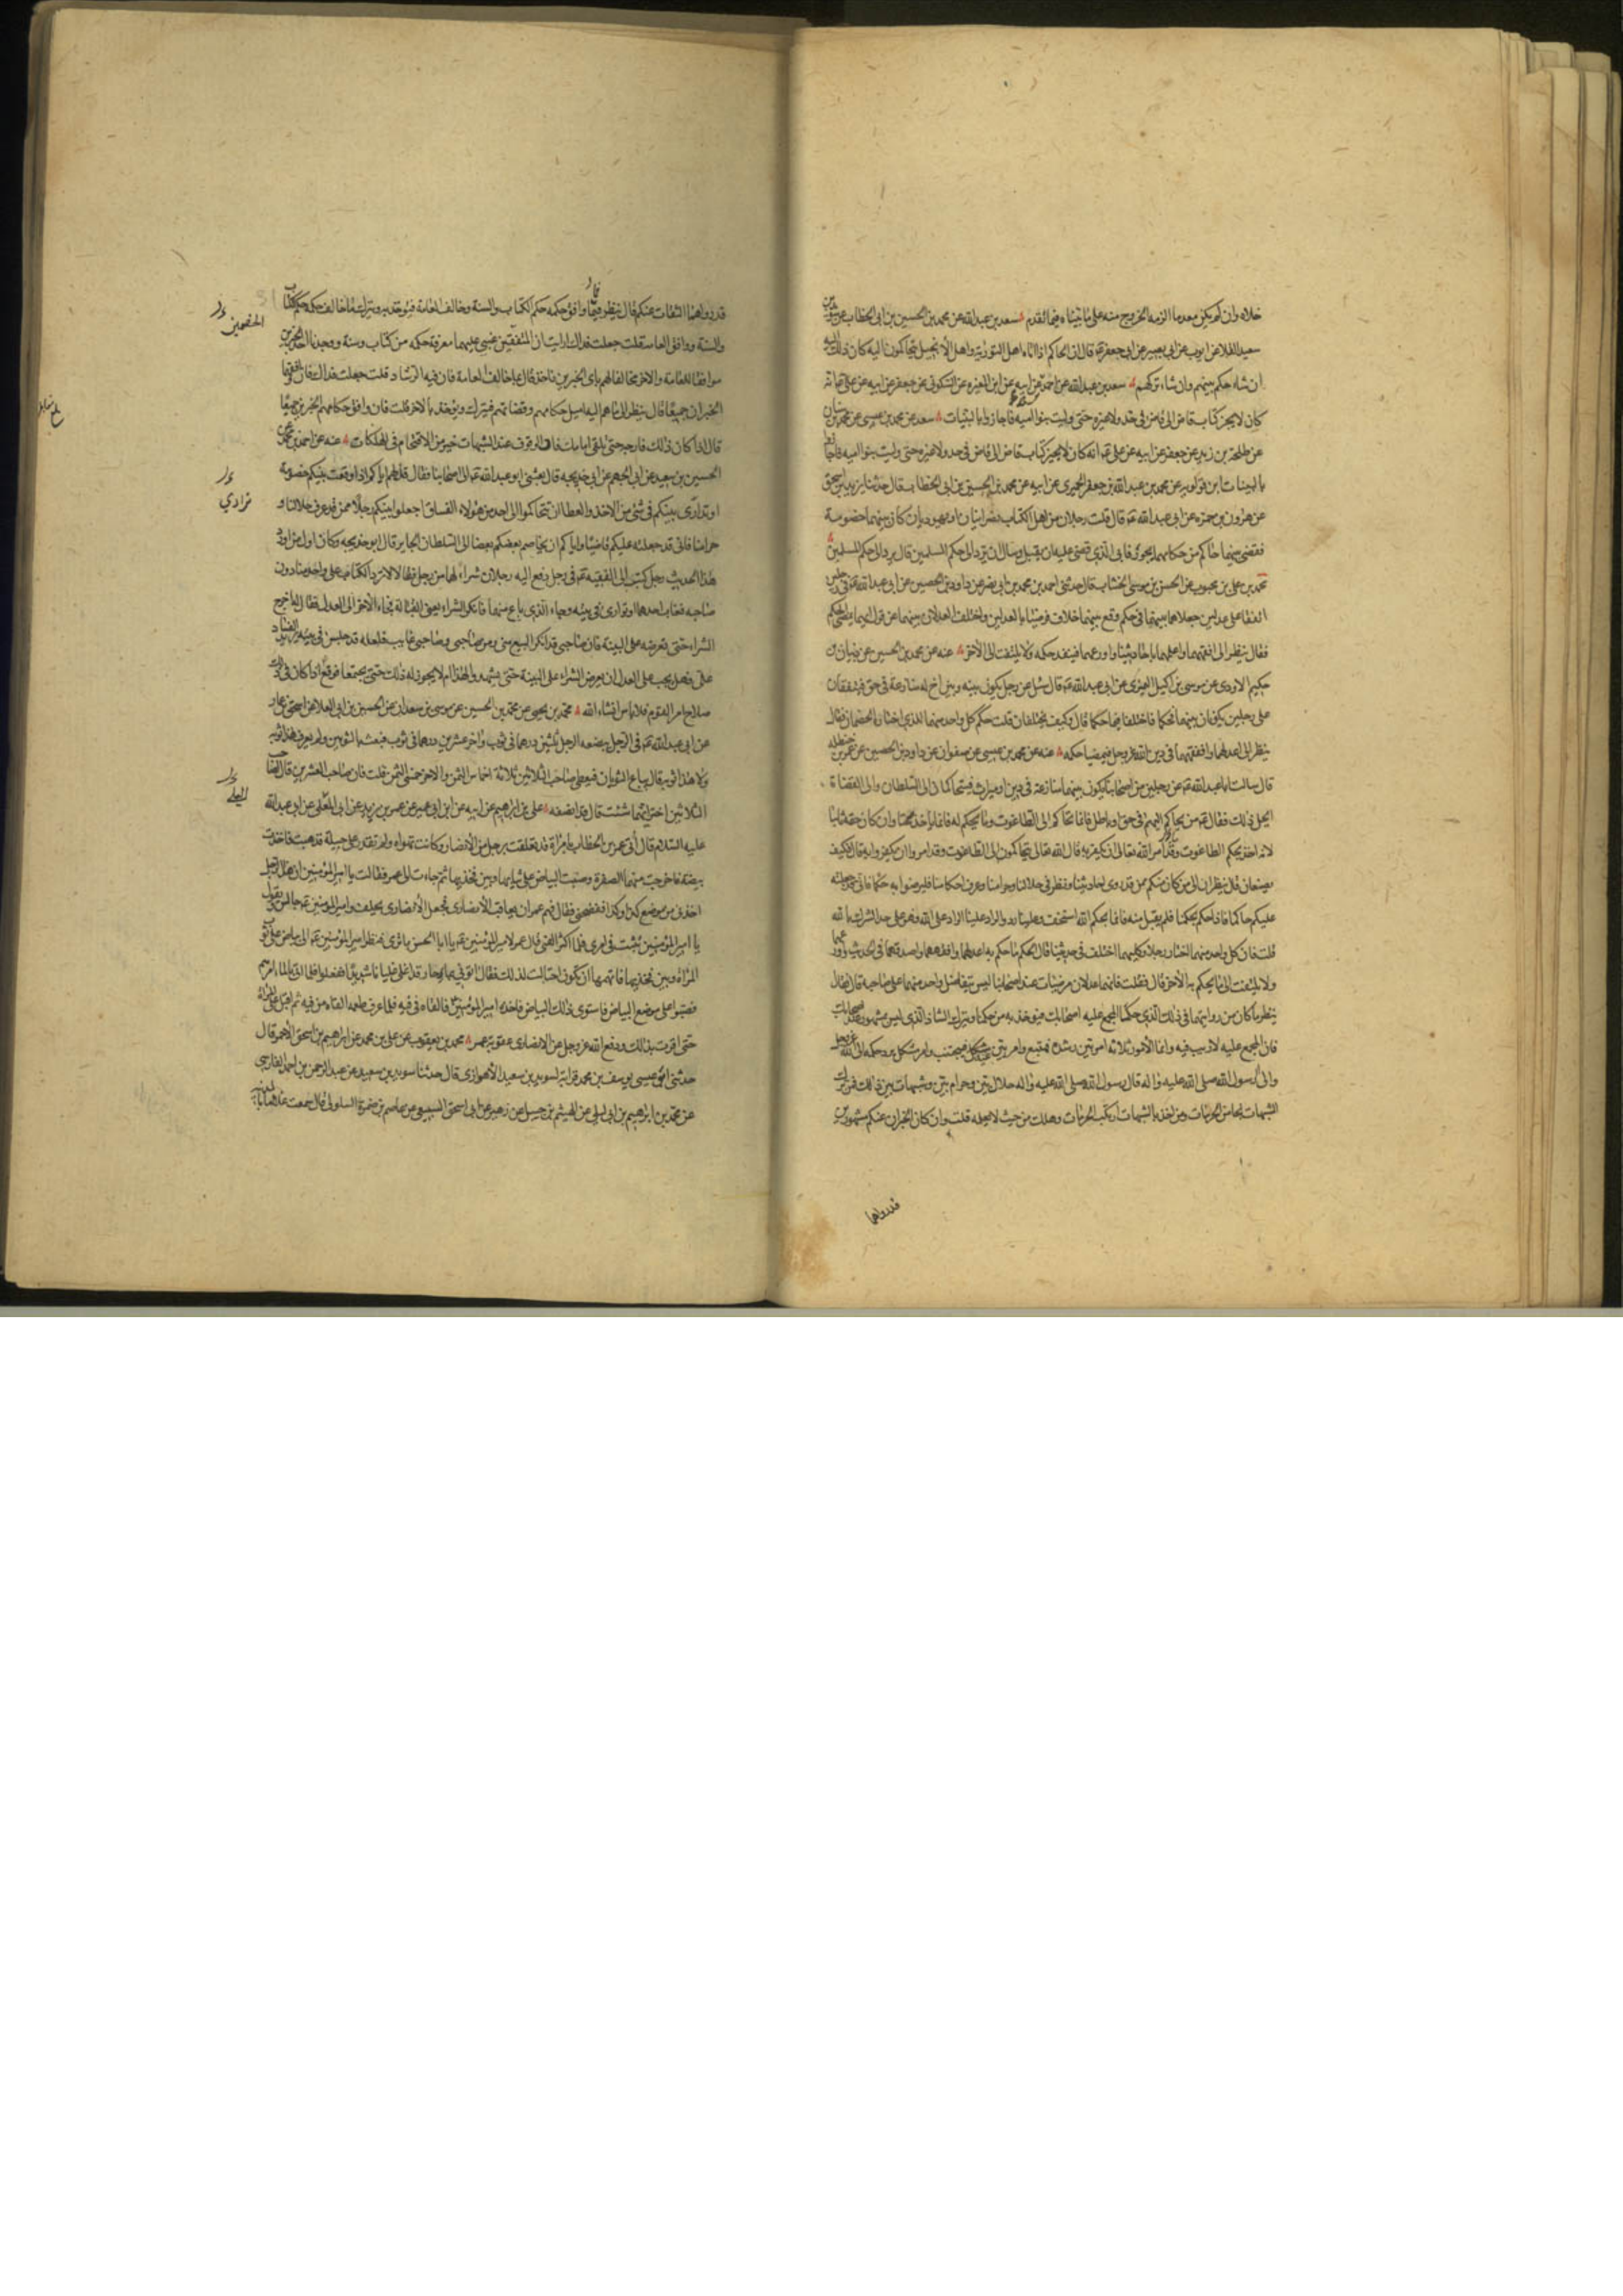 خلاه وان لم يكن معدما الزمه الخروج منه على ما بيناه فيما تقدم سعد بن عبد الله عن محمد بن الحسين بن ابي الخطاب عن سويد بن
سعيد القلا عن ايوب عن ابي بصير عن ابي جعفر ع قال ان الحاكم اذا اتاه اهل التورية واهل الانجيل يتحاكمون اليه كان ذلك اليه
ان شاء حكم بينهم وان شاء تركهم سعد بن عبد الله عن احمد عن ابيه عن ابن المغيره عن السكوني عن جعفر عن ابيه عن علي ع انه
كان لا يجيز كتاب قاض الى قاض في حد ولا غيره حتى وليت بنو اميه فاجازوا بالبينات سعد عن محمد بن عيسى عن محمد بن سنان
عن طلحة بن زيد عن جعفر عن ابيه عن علي ع انه كان لا يجيز كتاب قاض الى قاض في حد ولا غيره حتى وليت بنو اميه فاجا
بالبينات ابن قولويه عن محمد بن عبد الله بن جعفر الحميري عن ابيه عن محمد بن الحسين بن ابي الخطاب قال حدثنا يزيد بن اسحق
عن هرون بن حمزه عن ابي عبد الله ع قال قلت رجلان من اهل الكتاب نصرانيان او يهوديان كان بينهما خصومة
فقضى بينهما حاكم من حكامهما بجور فابى الذي قضى عليه ان يقبل وسال ان يرد الى حكم المسلمين قال يرد الى حكم المسلمين
محمد بن علي بن محبوب عن الحسن بن موسى الخشاب قال حدثني احمد بن محمد بن ابي نصر عن داود بن الحصين عن ابي عبد الله ع في رجلين
اتفقا على عدلين جعلاهما بينهما في حكم وقع بينهما خلاف فرضيا بالعدلين واختلف العدلان بينهما عن قول ايهما يمضي الحكم
فقال ينظر الى افقههما واعلمهما باحاديثنا واورعهما فينفد حكمه ولا يلتفت الى الآخر عنه عن محمد بن الحسين عن ذبيان بن
حكيم الاودي عن موسى بن اكيل النميري عن ابي عبد الله ع قال سئل عن رجل يكون بينه وبين اخ له منازعة في حق فيتفقان
على رجلين يكونان بينهما فحكما فاختلفا فيما حكما قال وكيف يختلفان قلت حكم كل واحد منهما للذي اختاره الخصمان فقال
ينظر الى اعدلهما وافقههما في دين الله عز وجل فيمضي حكمه عنه عن محمد بن عيسى عن صفوان عن داود بن الحصين عن عمر بن حنظله
قال سالت ابا عبد الله ع عن رجلين من اصحابنا يكون بينهما منازعة في دين او ميراث فيتحاكما الى السلطان والى القضاة
ايحل ذلك فقال ع من تحاكم اليهم في حق او باطل فانما تحاكم الى الطاغوت وما يحكم له فانما ياخذ سحتا وان كان حقه ثابتا
لانه اخذ بحكم الطاغوت وقد امر الله تعالى ان يكفر به قال الله تعالى يتحاكمون الى الطاغوت وقد امروا ان يكفروا به قال فكيف
يصنعان قال ينظران الى من كان منكم ممن قد روى حديثنا ونظر في حلالنا وحرامنا وعرف احكامنا فليرضوا به حكما فاني قد جعلته
عليكم حاكما فاذا حكم بحكمنا فلم يقبل منه فانما بحكم الله استخف وعلينا رد والراد علينا الراد على الله وهو على حد الشرك بالله
قلت فان كل واحد منهما اختار رجلا وكليهما اختلف في حديثنا قال الحكم ما حكم به اعدلهما وافقههما واصدقهما في الحديث واورعهما
ولا يلتفت الى ما يحكم به الآخر قال فقلت فانهما عدلان مرضيان عند اصحابنا ليس يتفاضل واحد منهما على صاحبه قال فقال
ينظر ما كان من روايتهما في ذلك الذي حكما المجمع عليه اصحابك فيؤخذ به من حكمنا ويترك الشاذ الذي ليس بمشهور عند اصحابك
فان المجمع عليه لا ريب فيه وانما الامور ثلاثة امر بين رشده فمتبع وامر بين غيه فيجتنب وامر مشكل يرد حكمه الى الله عز وجل
والى رسول الله صلى الله عليه واله قال رسول الله صلى الله عليه واله حلال بين وحرام بين وشبهات بين ذلك فمن ترك
الشبهات نجا من المحرمات ومن اخذ بالشبهات ارتكب المحرمات وهلك من حيث لا يعلم قلت وان كان الخبران عنكم مشهورين
قد رواهما
قد رواهما الثقات عنكم قال ينظر فيما وافق حكمه حكم الكتاب والسنة وخالف العامة فيؤخذ به ويترك ما خالف حكمه حكم الكتاب
والسنة ووافق العامه قلت جعلت فداك ارايت ان المتفقين غبي عليهما معرفة حكمه من كتاب وسنة ووجدنا احد الخبرين
موافقا للعامة والاخر مخالفا لهم باي الخبرين ناخذ قال بما خالف العامة فان فيه الرشاد قلت جعلت فداك فان وافقهما
الخبران جميعا قال ينظر الى ما هم اليه اميل حكامهم وقضاتهم فيترك ويؤخذ بالآخر قلت فان وافق حكامهم الخبرين جميعا
قال اذا كان ذلك فارجه حتى تلقى امامك فان الوقوف عند الشبهات خير من الاقتحام في الهلكات عنه عن احمد بن محمد عن
الحسين بن سعيد عن ابي الجهم عن ابي خديجه قال بعثني ابو عبد الله ع الى اصحابنا فقال قل لهم اياكم اذا وقعت بينكم خصومة
او تداري بينكم في شئ من الاخذ والعطا ان تتحاكموا الى احد من هؤلاء الفساق اجعلوا بينكم رجلا ممن قد عرف حلالنا و
حرامنا فاني قد جعلته عليكم قاضيا واياكم ان يخاصم بعضكم بعضا الى السلطان الجاير قال ابو خديجه وكان اول من اورد
هذا الحديث رجل كتب الى الفقيه ع في رجل دفع اليه رجلان شراء لهما من رجل فقالا لا ترد الكتاب على واحد منا دون
صاحبه فغاب احدهما او توارى في بيته وجاء الذي باع منهما فانكر الشراء يعني القبالة فجاء الآخر الى العدل فقال له اخرج
الشراء حتى نعرضه على البينة فان صاحبي قد انكر البيع مني ومن صاحبي وصاحبي غايب فلعله قد جلس في بيته يريد الفساد
علي فهل يجب على العدل ان يعرض الشراء على البينة حتى يشهدوا لهذا ام لا يجوز له ذلك حتى يجتمعا فوقع اذا كان في ذلك
صلاح امر القوم فلا باس انشاء الله محمد بن يحيى عن محمد بن الحسين عن موسى بن سعدان عن الحسين بن ابي العلا عن اسحق بن عمار
عن ابي عبد الله ع في الرجل يبضعه الرجل ثلثين درهما في ثوب واخر عشرين درهما في ثوب فبعث بالثوبين ولم يعرف هذا ثوبه
ولا هذا ثوبه قال يباع الثوبان فيعطى صاحب الثلاثين ثلاثة اخماس الثمن والآخر خمسي الثمن قلت فان صاحب العشرين قال لصاحب
الثلاثين اختر ايهما شئت قال قد انصفه علي بن ابراهيم عن ابيه عن ابن ابي عمير عن عمر بن يزيد عن ابي المعلى عن ابي عبد الله
عليه السلام قال أتي عمر بن الخطاب بامرأة قد تعلقت برجل من الأنصار وكانت تهواه ولم تقدر على حيلة فذهبت فاخذت
بيضة فاخرجت منها الصفرة وصبت البياض على ثيابها وبين فخذيها ثم جاءت الى عمر فقالت يا امير المؤمنين ان هذا الرجل
اخذني من موضع كذا وكذا ففضحني فقال فهم عمر ان يعاقب الأنصاري فجعل الأنصاري يحلف وامير المؤمنين ع جالس ويقول
يا امير المؤمنين تثبت في امري فلما اكثر الفتى قال عمر لامير المؤمنين ع يا ابا الحسن ما ترى فنظر امير المؤمنين ع الى بياض على ثوب
المراة وبين فخذيها فاتهمها ان تكون احتالت لذلك فقال ائتوني بماء حار قد اغلي غليانا شديدا ففعلوا فلما اتي بالماء امرهم
فصبوا على موضع البياض فاستوى ذلك البياض فاخذه امير المؤمنين ع فالقاه في فيه فلما عرف طعمه القاه من فيه ثم اقبل على المراة
حتى اقرت بذلك ودفع الله عز وجل عن الانصاري عقوبة عمر محمد بن يعقوب عن علي بن محمد عن ابراهيم بن اسحق الأحمر قال
حدثني ابو عيسى يوسف بن محمد قرابة لسويد بن سعيد الأهوازي قال حدثنا سويد بن سعيد عن عبد الرحمن بن احمد الفارسي
عن محمد بن ابراهيم بن ابي ليلى عن الهيثم بن جميل عن زهير عن ابي اسحق السبيعي عن عاصم بن ضمرة السلولي قال سمعت غلاما بالمدينة